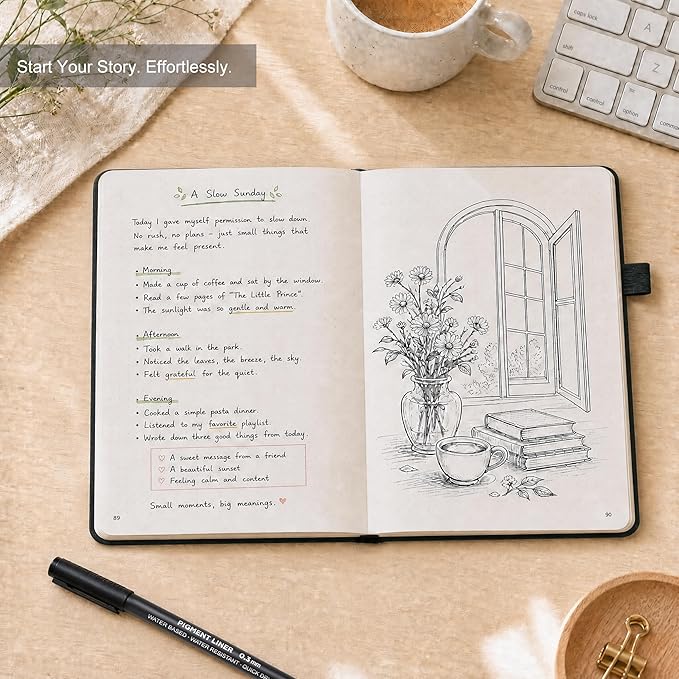 Start Your Story. Effortlessly.
caps lock
A
shift
Z
control
option
command
control
A Slow Sunday
Today I gave myself permission to slow down.
No rush, no plans – just small things that
make me feel present.
• Morning
• Made a cup of coffee and sat by the window.
• Read a few pages of "The Little Prince".
• The sunlight was so gentle and warm.
• Afternoon
• Took a walk in the park.
• Noticed the leaves, the breeze, the sky.
• Felt grateful for the quiet.
• Evening
• Cooked a simple pasta dinner.
• Listened to my favorite playlist.
• Wrote down three good things from today.
♡ A sweet message from a friend
♡ A beautiful sunset
♡ Feeling calm and content
Small moments, big meanings. ♡
89
90
PIGMENT LINER 0.3 mm
WATER BASED · WATER RESISTANT · QUICK